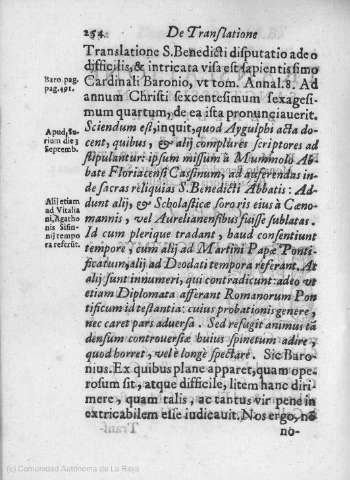 254. De Translatione
Translatione S. Benedicti disputatio adeo
difficilis, & intricata visa est sapientissimo
Baro. pag.
pag. 491.
Cardinali Baronio, vt tom. Annal. 8. Ad
annum Christi sexcentesimum sexagesi-
mum quartum, de ea ista pronunciauerit.
Apud, Su-
rium die 3
Septemb.
Sciendum est, inquit, quod Aygulphi acta do-
cent, quibus, & alij complures scriptores ad
stipulantur: ipsum missum à Mummolo Ab-
bate Floriacensi Cassinum, ad auferendas in-
de sacras reliquias S. Benedicti Abbatis: Ad-
Alij etiam
ad Vitalia
ni, Agatho
nis Sisin-
nij tempo
ra referūt.
dunt alij, & Scholasticæ sororis eius à Cæno-
mannis, vel Aurelianensibus fuisse sublatas.
Id cum plerique tradant, haud consentiunt
tempore, cum alij ad Martini Papæ Ponti-
ficatum, alij ad Deodati tempora referant. At
alij sunt innumeri, qui contradicunt: adeo vt
etiam Diplomata afferant Romanorum Pon
tificum id testantia: cuius probationis genere,
nec caret pars aduersa. Sed refugit animus tā
densum controuersiæ huius spinetum adire,
quod horret, vel è longè spectare. Sic Baro-
nius. Ex quibus plane apparet, quam ope-
rosum sit, atque difficile, litem hanc diri-
mere, quam talis, ac tantus vir pene in
extricabilem esse iudicauit. Nos ergo, nō
no-
(c) Comunidad Autónoma de La Rioja